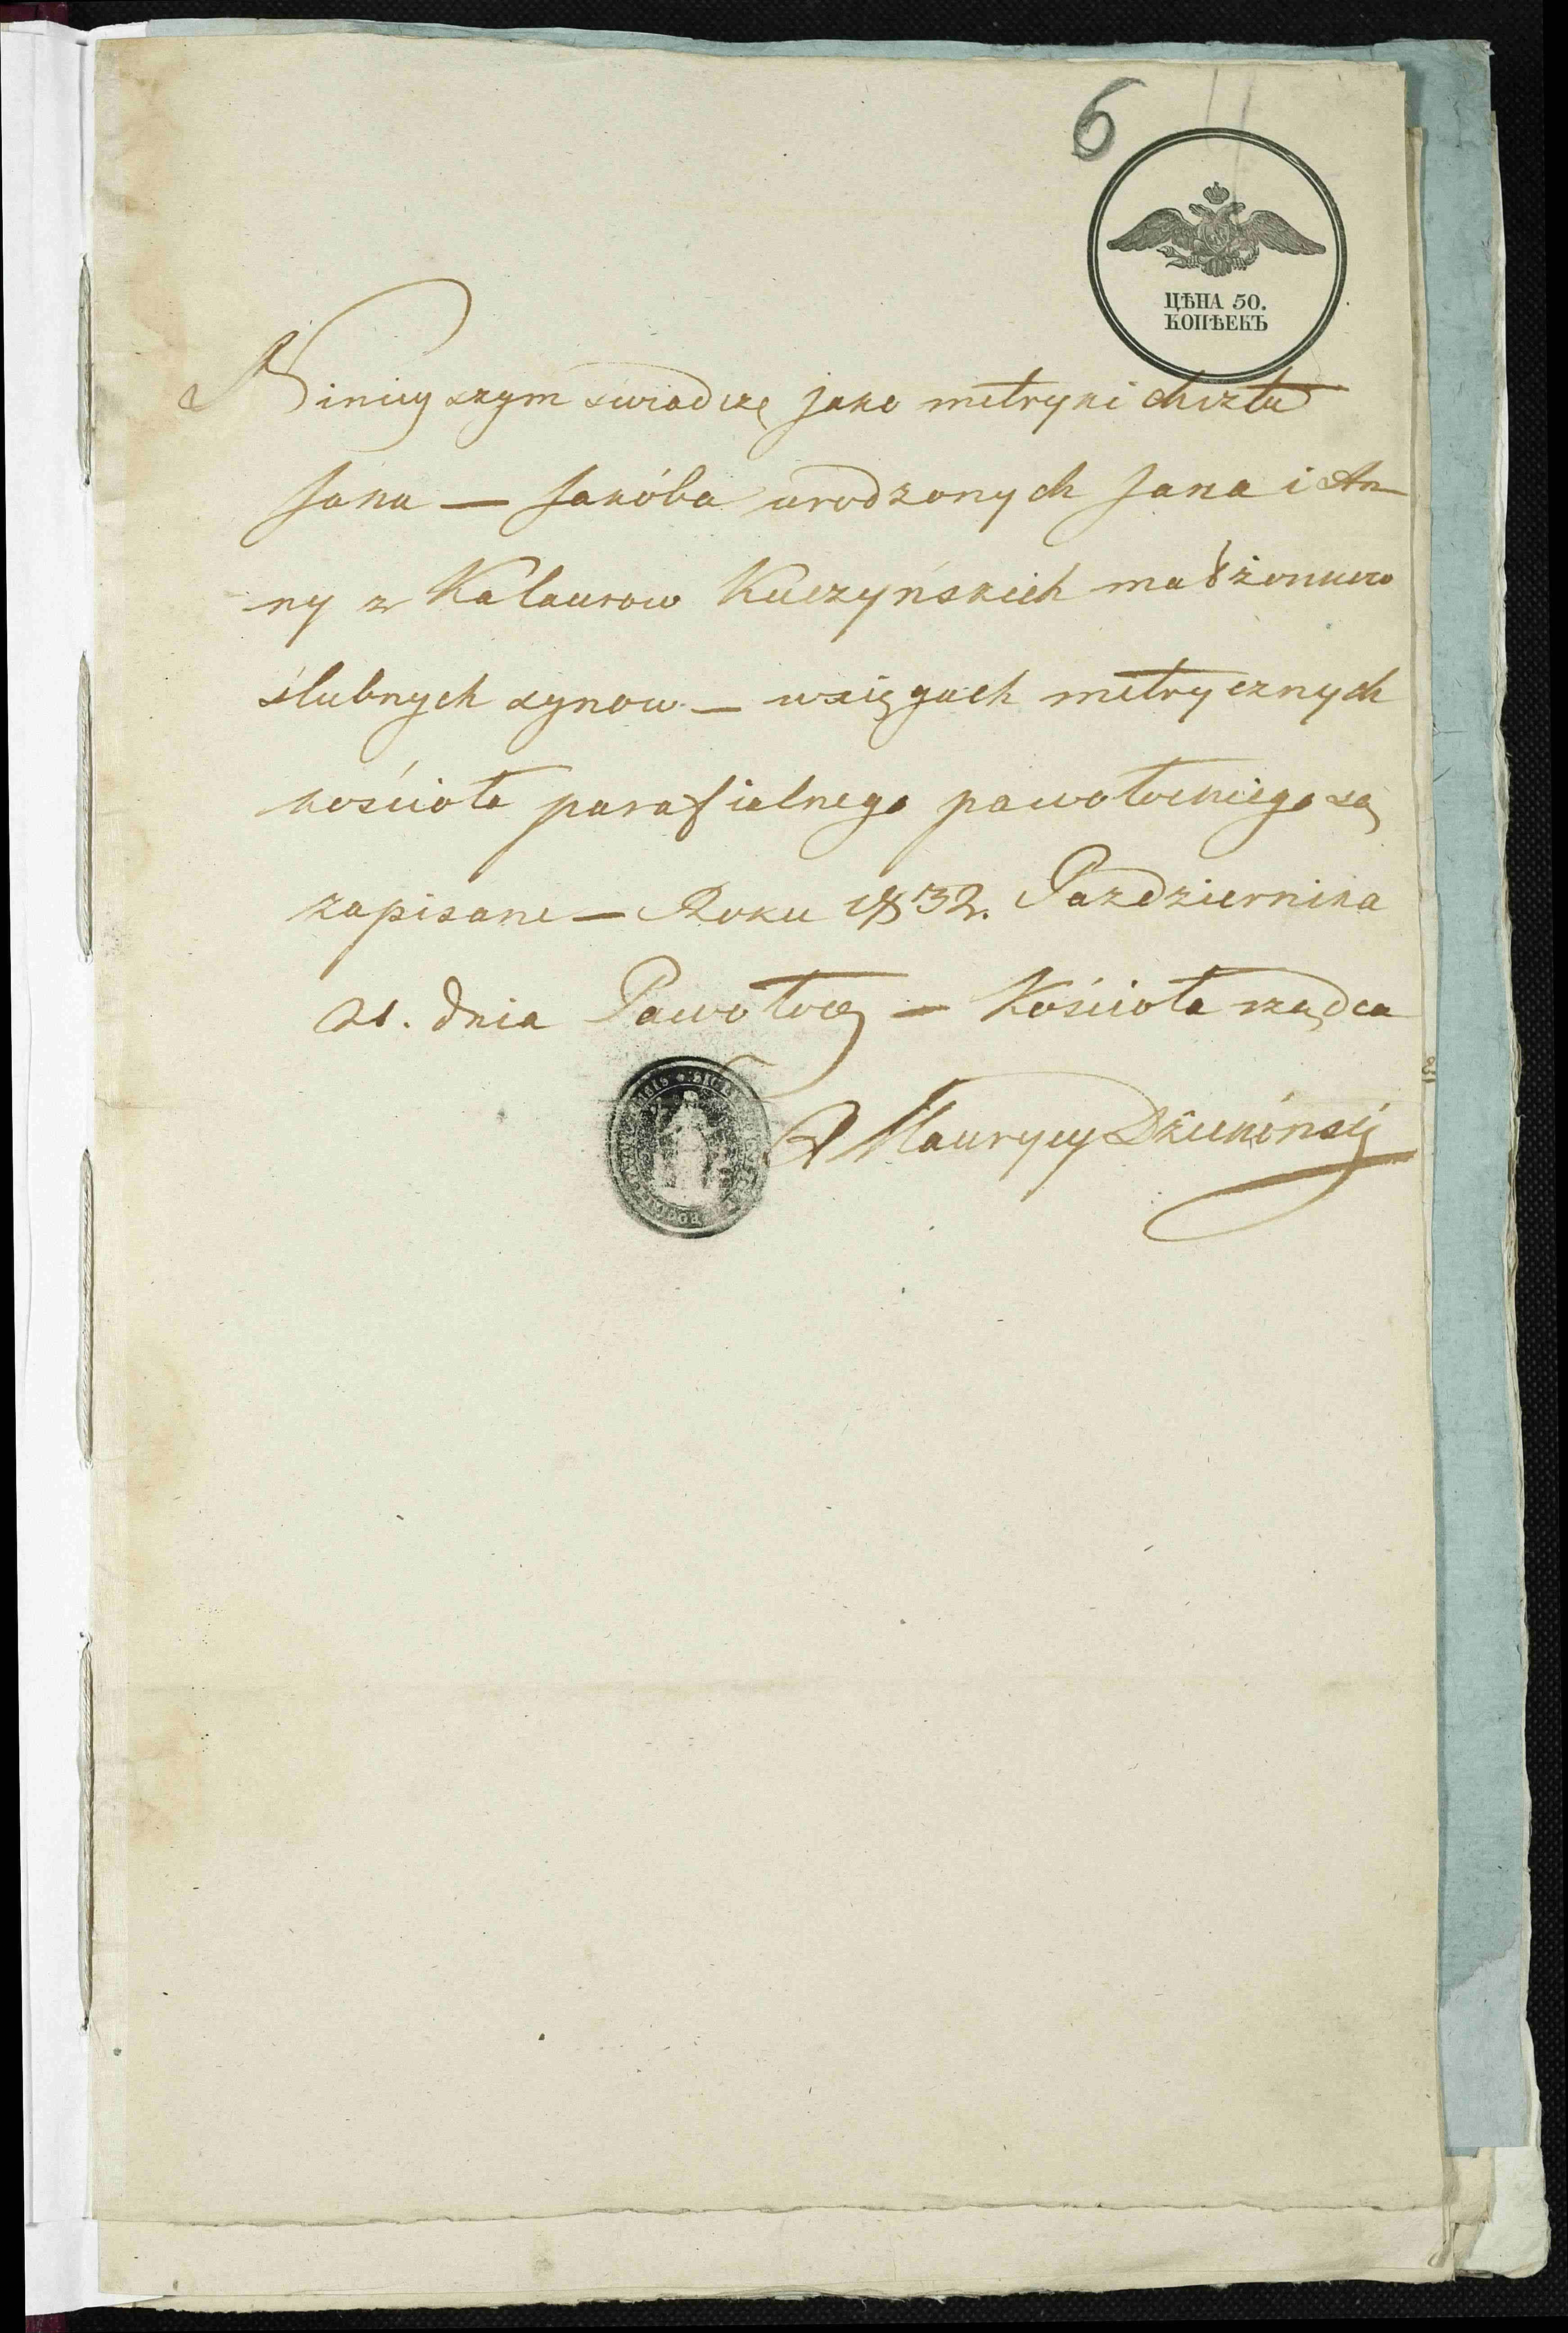 6
ЦѢНА 50.
КОПѢЕКЪ
Ninieyszym swiadczę jako metryki chrztu
Jana — Jakóba urodzonych Jana i An-
ny z Kalaurow Kuczyńskich małżonkow
ślubnych synow — w xięgach metrycznych
kościoła parafialnego pawołockiego są
zapisane — Roku 1832. Pazdziernika
21. dnia Pawołocz — Kościoła rządca
X Maurycy